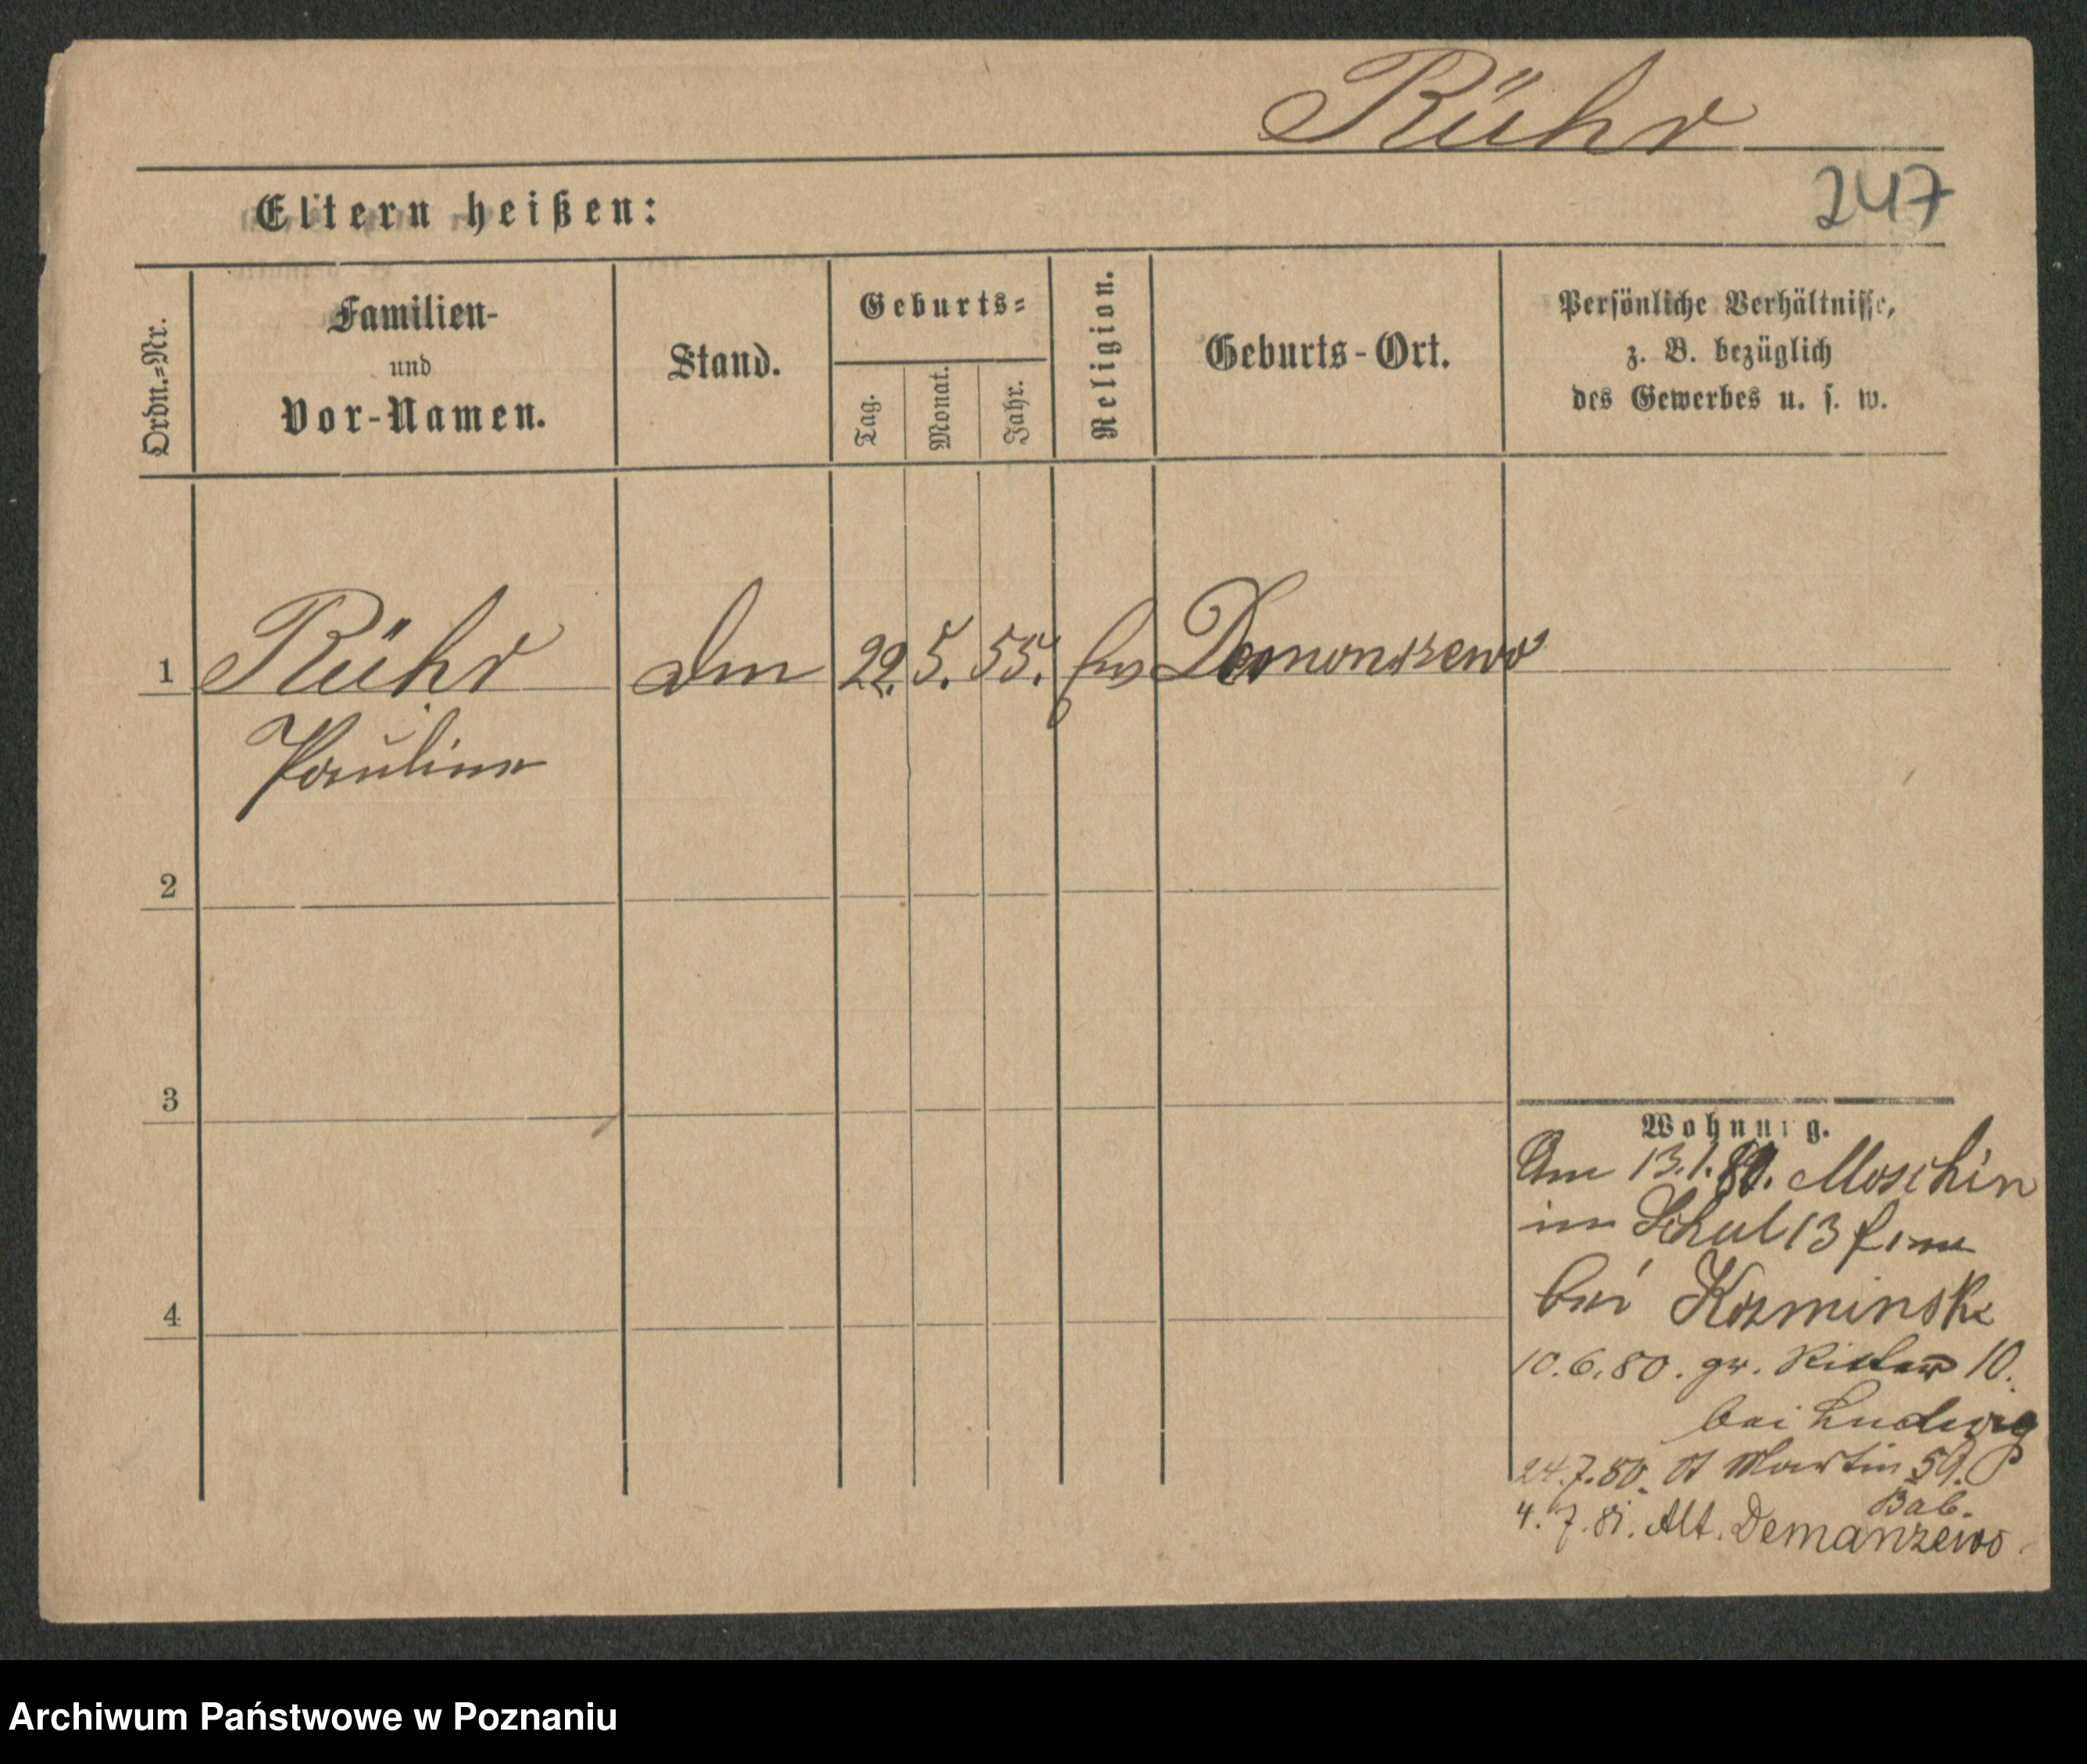 Rühr
247
Eltern heißen:
Ordn.-Nr.
Familien-
und
Vor-Namen.
Stand.
Geburts-
Tag.
Monat.
Jahr.
Religion.
Geburts-Ort.
Persönliche Verhältnisse,
z. B. bezüglich
des Gewerbes u. s. w.
1 Rühr 22. 5. 55. ev
Pauline
2
3
4
Wohnung.
Am 13.1.80. Moschin
im Schul 13
bei Kozminski
10.6.80. gr. Ritter 10.
bei Ludwig
24.7.80. St Martin 59.
Bab.
4.7.81. Alt. Demanzewo
Archiwum Państwowe w Poznaniu